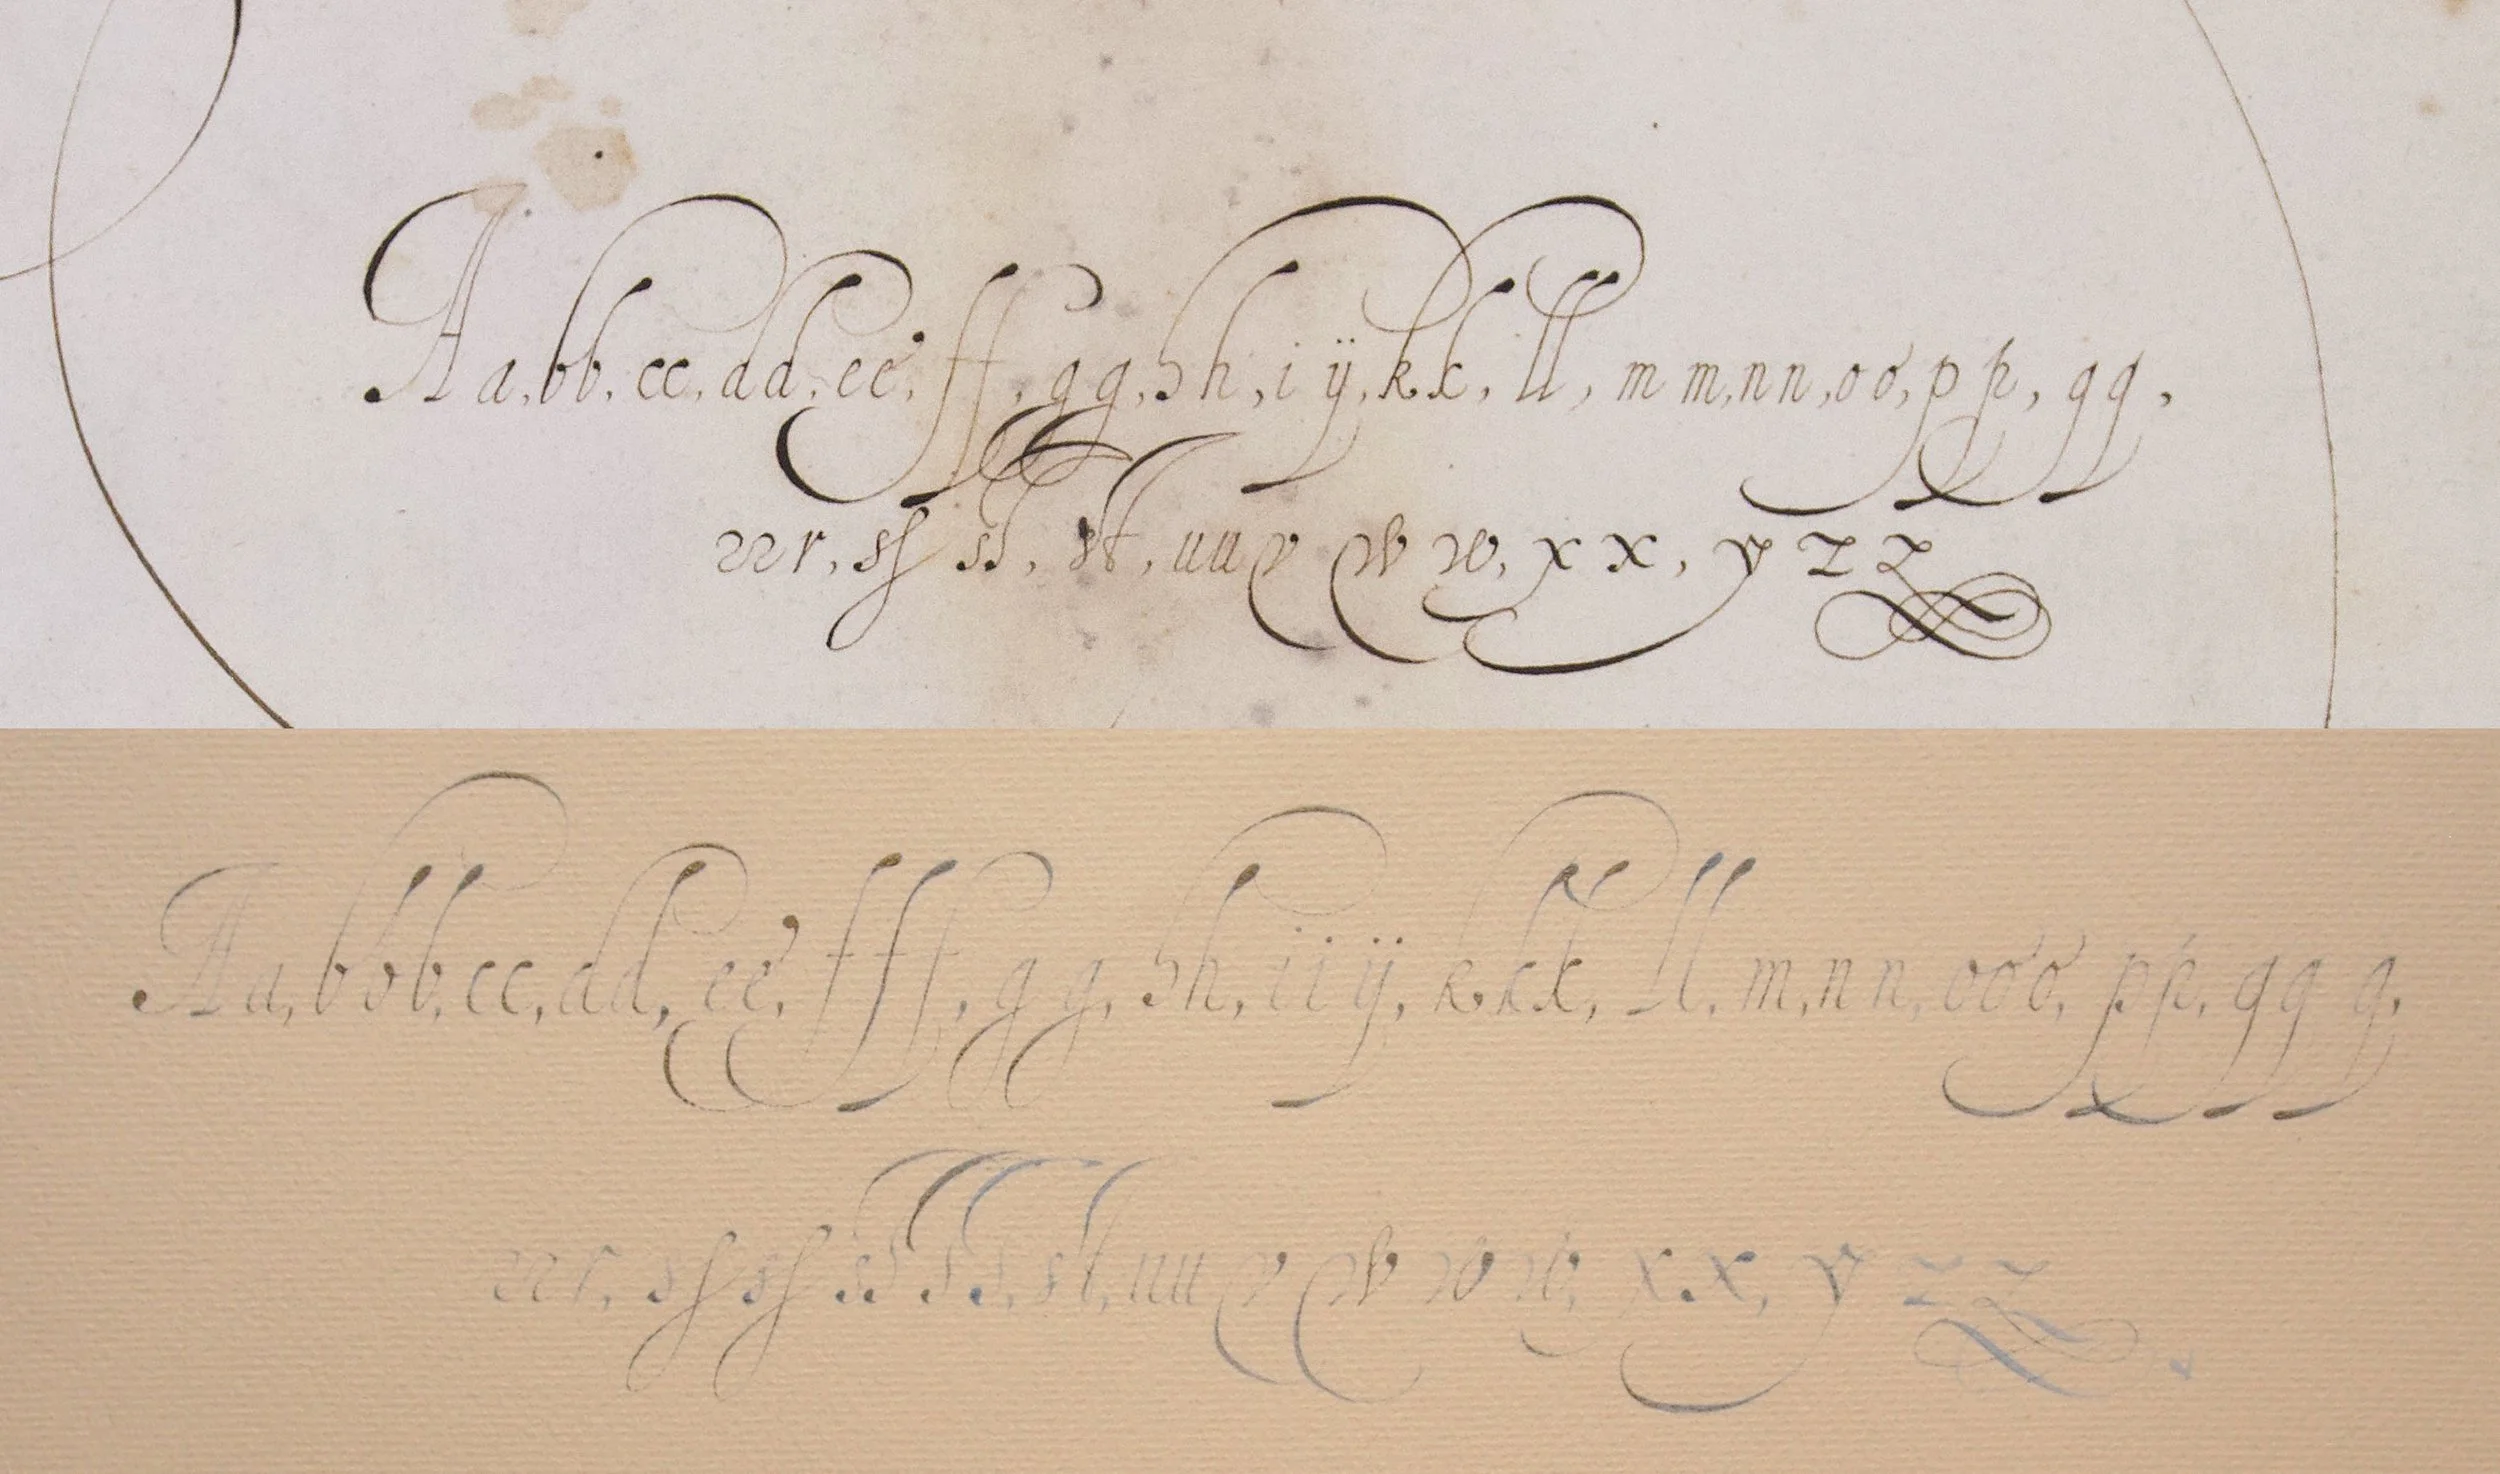 A a, bb, cc, dd, ee, ff, gg, hh, i ÿ, kk, ll, m m, nn, oo, pp, qq,
rrr, ss ss, st, uu v w w, x x, y z z
A a, bbb, cc, dd, ee, fff, gg, hh, iiÿ, kkk, ll, m, nn, ooo, pp, qq q,
rrr, ss ss ss ss, st, uu v w w w, x x, y z z